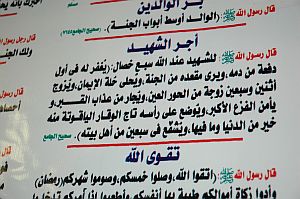 بر الوالدين
قال رسول الله ﷺ (الوالد أوسط أبواب الجنـة). صحيح الجامع
أجر الشهيد
قال رسول الله ﷺ للشهيد عند الله سبع خصال: (يُغفر له فى أول
دفعة من دمه، ويرى مقعده من الجنة، ويُحلى حُلة الإيمان، ويُزوج
أثنتين وسبعين زوجة من الحور العين، ويُجار من عذاب القـبـر، و
يأمن الفزع الأكبر، ويُوضع على رأسه تاج الوقار الياقوتة منه
خير من الدنيا وما فيها، ويُشفّع فى سبعين من أهل بيته). صحيح الجامع
تقوى الله
قال رسول الله ﷺ (اتقوا الله، وصلوا خمسكم، وصوموا شهركم (رمضان)
وأدوا زكاة أموالكم طيبة بها أنفسكم، وأطيعوا